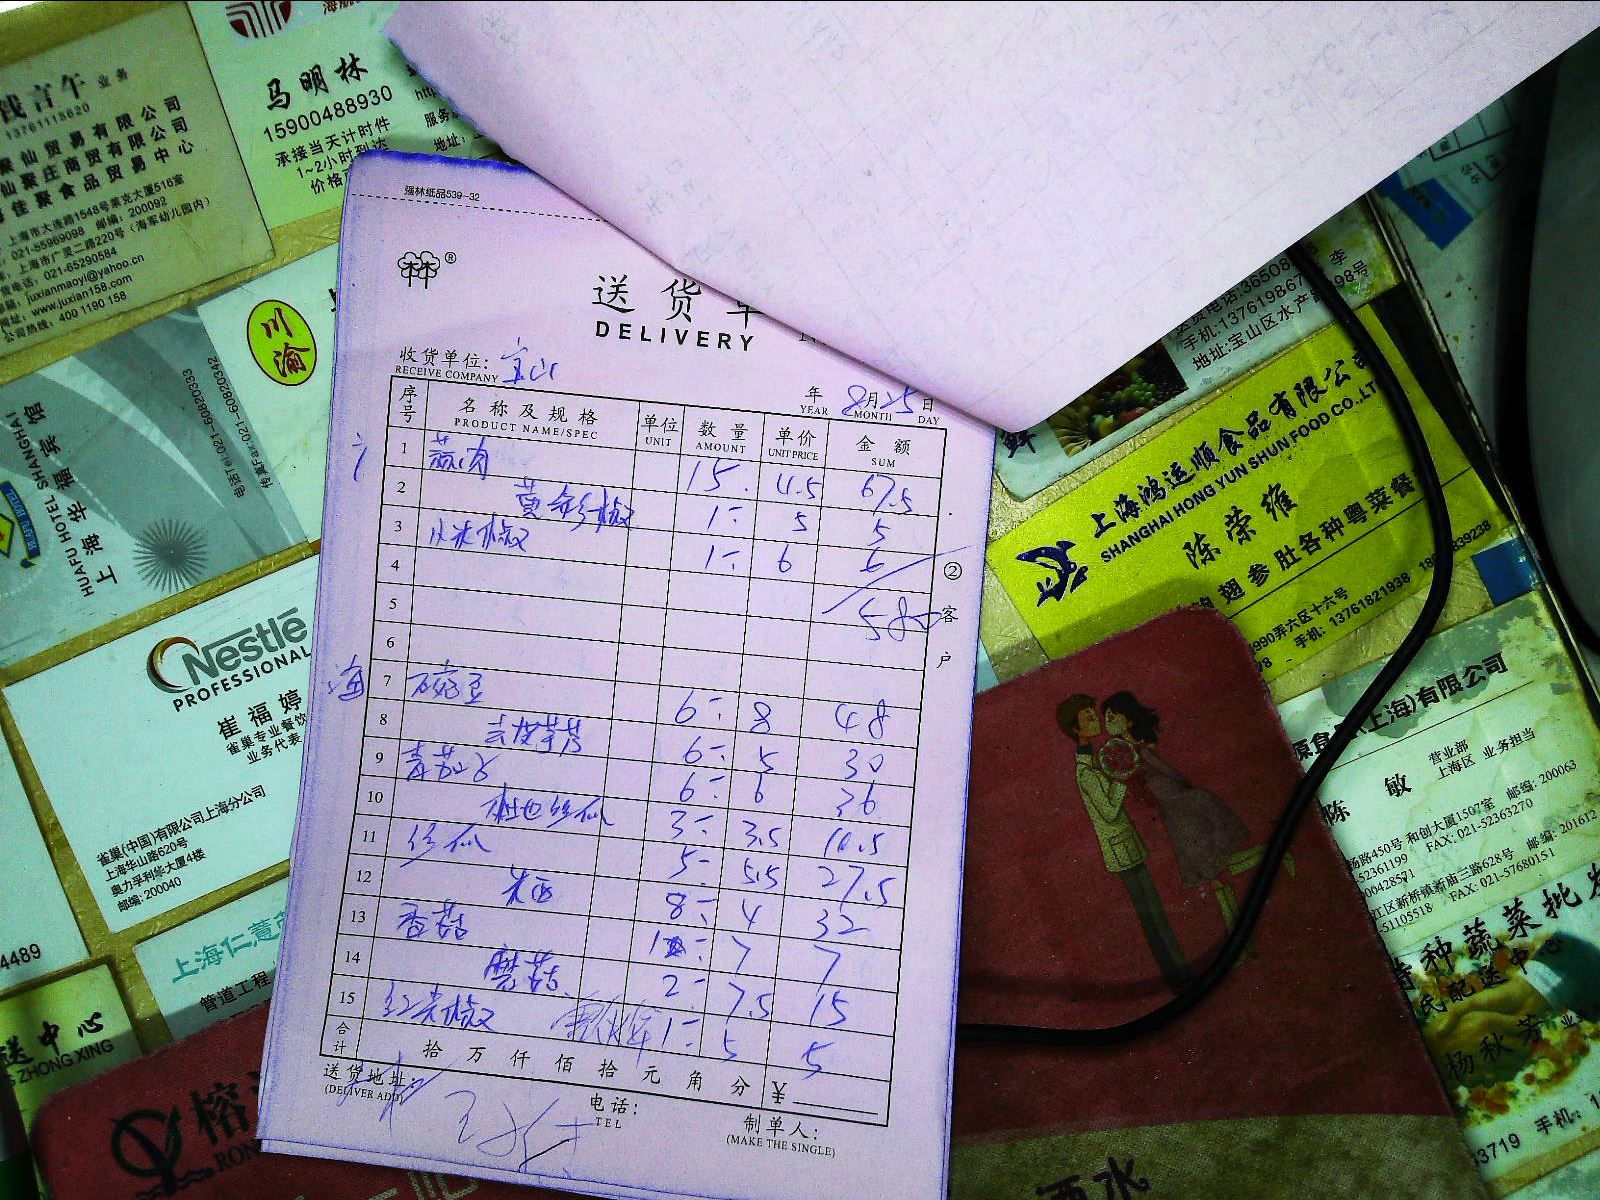 钱言午 业务
13761115620
聚仙贸易有限公司
仙聚庄商贸有限公司
佳聚食品贸易中心
上海市大连路1548号莱克大厦516室
021-55969098 邮编：200092
上海市广灵二路220号（海军幼儿园内）
021-65290584
juxianmaoyi@yahoo.cn
www.juxian158.com
公司热线：400 1190 158
马明林
15900488930
承接当天计时件
1~2小时到达
价格
服务
地址：
川渝
上海华馥宾馆
HUAFU HOTEL SHANGHAI
电话Tel:021-60820333
传真Fax:021-60820342
Nestle
PROFESSIONAL
崔福婷
雀巢专业餐饮
业务代表
雀巢(中国)有限公司上海分公司
上海华山路620号
奥力孚利华大厦4楼
邮编: 200040
4489
上海仁薏
管道工程
送中心
ZHONG XING
榕
RON
强林纸品539-32
®
送货单
DELIVERY
收货单位： 宝山
RECEIVE COMPANY
年 8月25日
YEAR MONTH DAY
序号 名称及规格 单位 数量 单价 金额
PRODUCT NAME/SPEC UNIT AMOUNT UNIT PRICE SUM
1 蒜肉 15. 4.5 67.5
2 黄彩椒 1- 5 5
3 小米椒 1- 6 6
4
5 580
6
海
7 豌豆 6- 8 48
8 去皮芋艿 6- 5 30
9 青茄子 6- 6 36
10 本地丝瓜 3- 3.5 10.5
11 丝瓜 5- 5.5 27.5
12 米西 8- 4 32
13 香菇 1- 7 7
14 蘑菇 2- 7.5 15
15 红尖椒 1- 5 5
合计 拾 万 仟 佰 拾 元 角 分 ¥
送货地址：
(DELIVER ADD)
电话：
TEL
制单人：
(MAKE THE SINGLE)
②客户
送货电话:36508
手机:13761986
地址:宝山区水产路 98号
李
鲜
上海鸿运顺食品有限公司
SHANGHAI HONG YUN SHUN FOOD CO.,LT
陈荣维
翅参肚各种粤菜餐
990弄六区十六号
手机: 13761821938
839238
源食品(上海)有限公司
营业部
上海区 业务担当
陈敏
路450号 和创大厦1507室 邮编: 200063
52361199 FAX: 021-52363270
江区新桥镇新庙三路628号 邮编: 201612
51105518 FAX: 021-57680151
特种蔬菜批发
配送中心
杨秋芳 业
手机: 1
63719
西水